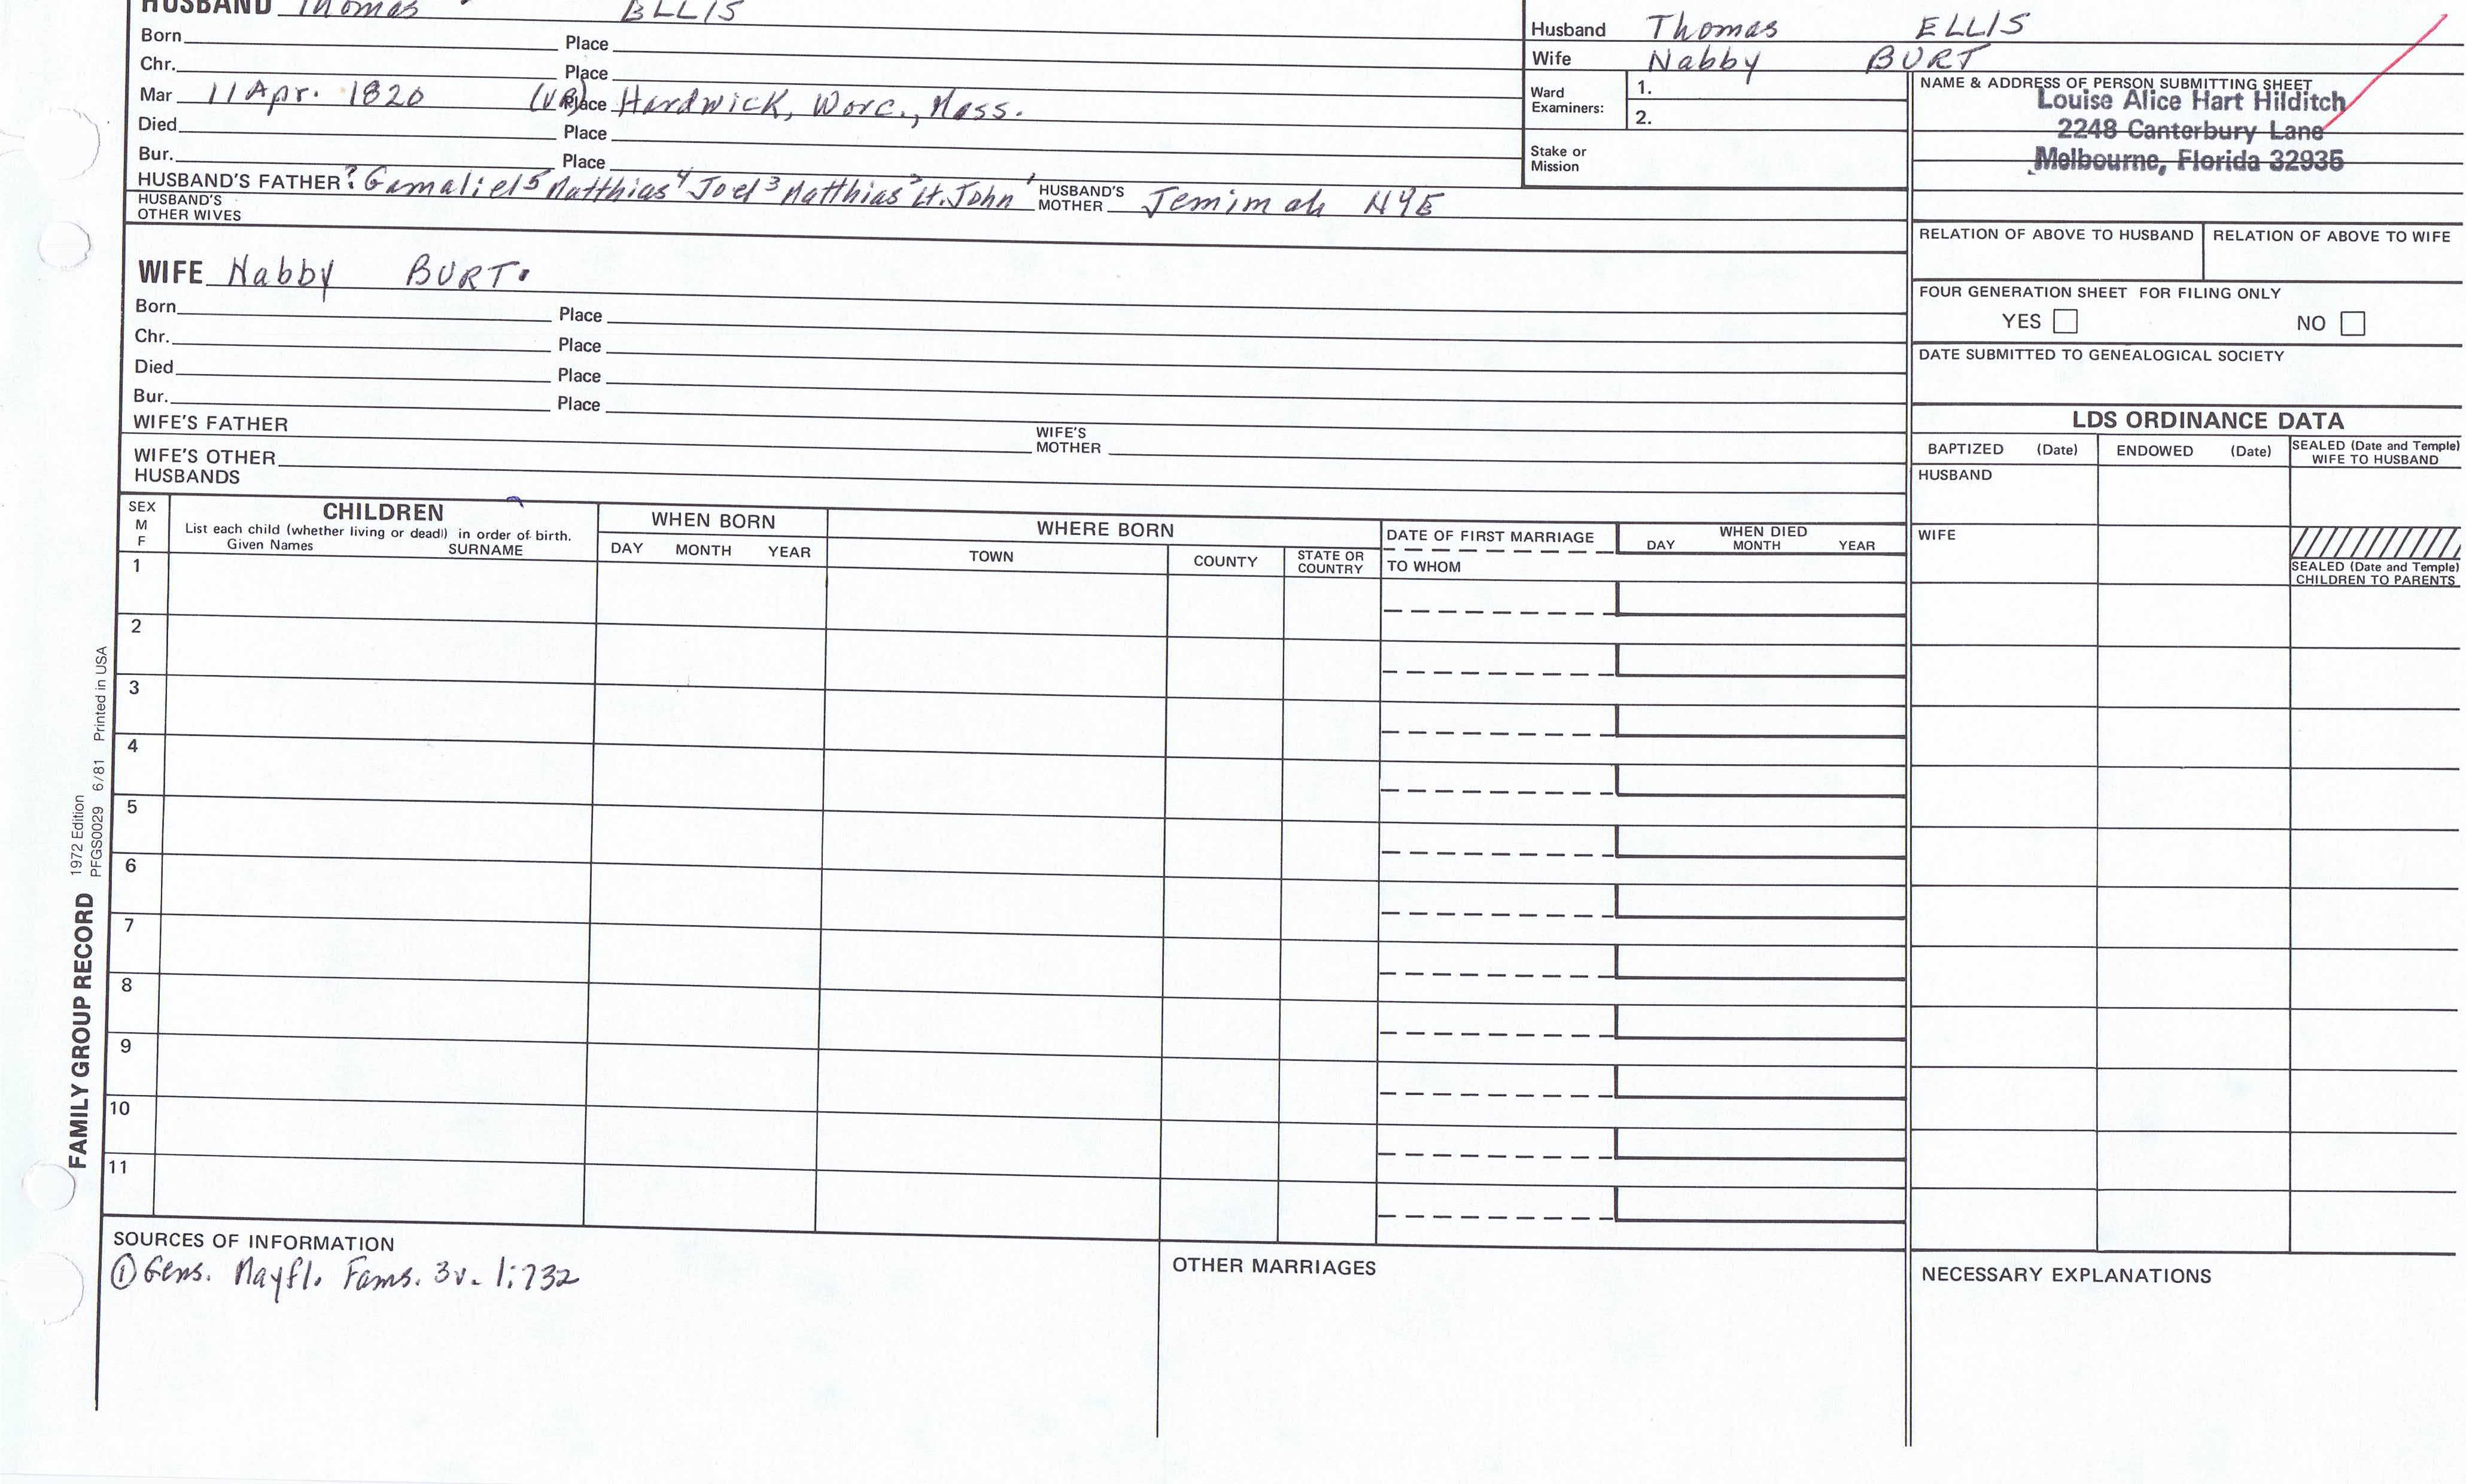 HUSBAND Thomas ELLIS
Born Place
Chr. Place
Mar 11 Apr. 1820 (VR) Place Hardwick, Worc., Mass.
Died Place
Bur. Place
HUSBAND'S FATHER ? Gamaliel⁵ Matthias⁴ Joel³ Matthias² Lt. John¹ HUSBAND'S MOTHER Jemimah NYE
HUSBAND'S OTHER WIVES
Husband Thomas ELLIS
Wife Nabby BURT
Ward Examiners: 1.
2.
Stake or Mission
NAME & ADDRESS OF PERSON SUBMITTING SHEET
Louise Alice Hart Hilditch
2248 Canterbury Lane
Melbourne, Florida 32935
RELATION OF ABOVE TO HUSBAND RELATION OF ABOVE TO WIFE
FOUR GENERATION SHEET FOR FILING ONLY
YES NO
DATE SUBMITTED TO GENEALOGICAL SOCIETY
WIFE Nabby BURT.
Born Place
Chr. Place
Died Place
Bur. Place
WIFE'S FATHER WIFE'S MOTHER
WIFE'S OTHER HUSBANDS
LDS ORDINANCE DATA
BAPTIZED (Date) ENDOWED (Date) SEALED (Date and Temple) WIFE TO HUSBAND
HUSBAND
WIFE
SEALED (Date and Temple) CHILDREN TO PARENTS
SEX M F
CHILDREN
List each child (whether living or dead) in order of birth.
Given Names SURNAME
WHEN BORN
DAY MONTH YEAR
WHERE BORN
TOWN COUNTY STATE OR COUNTRY
DATE OF FIRST MARRIAGE
TO WHOM
WHEN DIED
DAY MONTH YEAR
1
2
3
4
5
6
7
8
9
10
11
FAMILY GROUP RECORD
1972 Edition
PFGS0029 6/81 Printed in USA
SOURCES OF INFORMATION
① Gens. Mayfl. Fams. 3v. 1:732
OTHER MARRIAGES
NECESSARY EXPLANATIONS